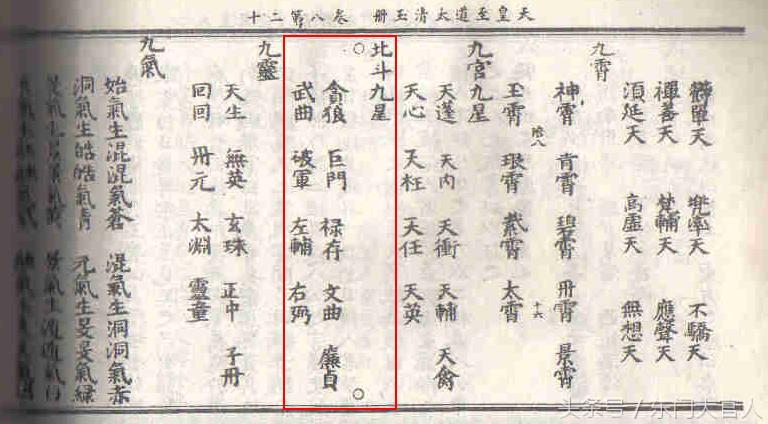 天皇至道太清玉册 卷八第二十
兜率天 不驕天
禪善天 梵輔天 應聲天
須延天 高虛天 無想天
九霄
神霄 青霄 碧霄 丹霄 景霄
玉霄 琅霄 紫霄 太霄
拾八
十六
九宮九星
天蓬 天內 天衝 天輔 天禽
天心 天柱 天任 天英
北斗九星
貪狼 巨門 祿存 文曲 廉貞
武曲 破軍 左輔 右弼
九靈
天生 無英 玄珠 正中 子丹
回回 丹元 太淵 靈童
九氣
始氣生混混氣蒼 混氣生洞洞氣赤
洞氣生皓皓氣青 元氣生旻旻氣綠
头条号 / 东门大官人